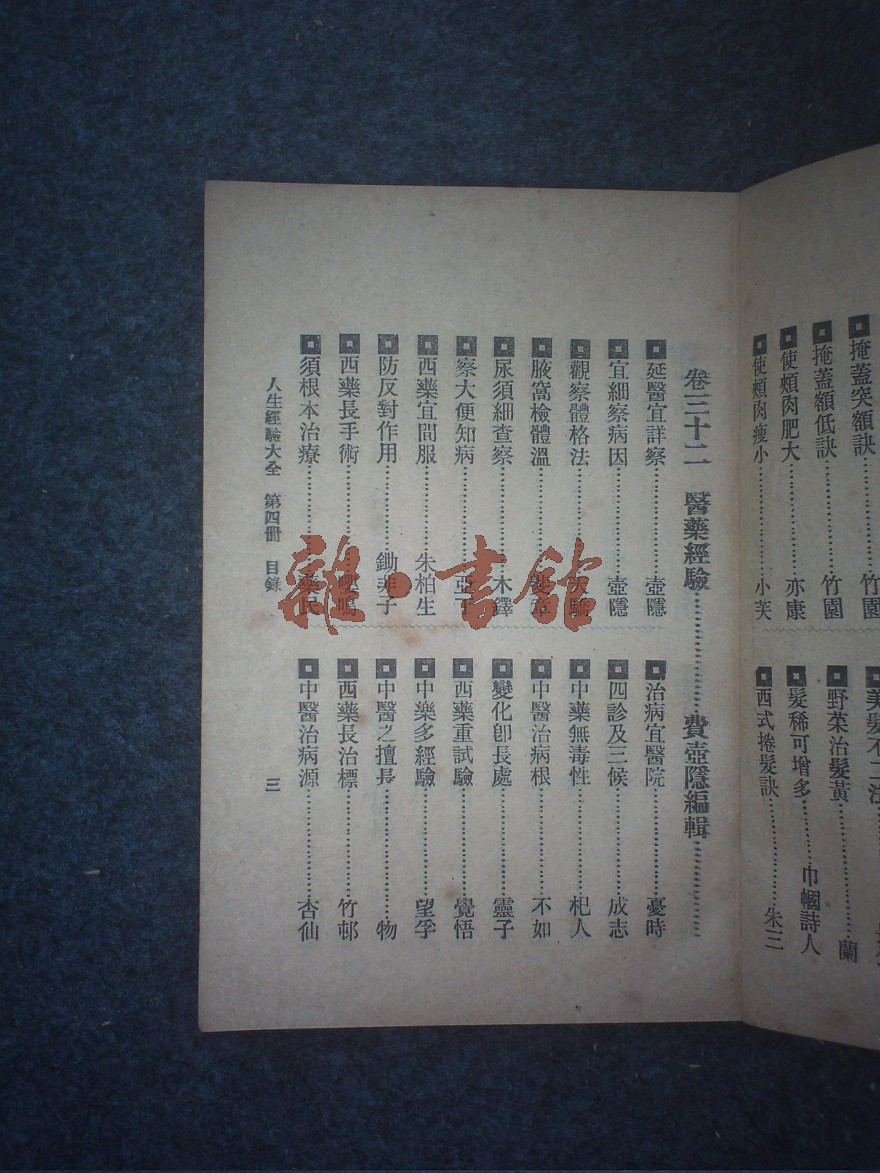 掩蓋突額訣……竹園
掩蓋額低訣……竹園
使頰肉肥大……亦康
使頰肉瘦小……小芙
野菜治髮黃……蘭
髮稀可增多……巾幗詩人
西式捲髮訣……朱三
卷三十二 醫藥經驗……費壺隱編輯……
延醫宜詳察……壺隱
宜細察病因……壺隱
觀察體格法……天驕
腋窩檢體溫
尿須細查察……木鐸
察大便知病
西藥宜間服……朱柏生
防反對作用……鋤非子
西藥長手術……嚶鳴
須根本治療
治病宜醫院……憂時
四診及三候……成志
中藥無毒性……杞人
中醫治病根……不如
變化卽長處……靈子
西藥重試驗……覺悟
中樂多經驗……望孚
中醫之擅長……物
西藥長治標……竹邨
中醫治病源……杏仙
人生經驗大全 第四冊 目錄 三
雜·書館